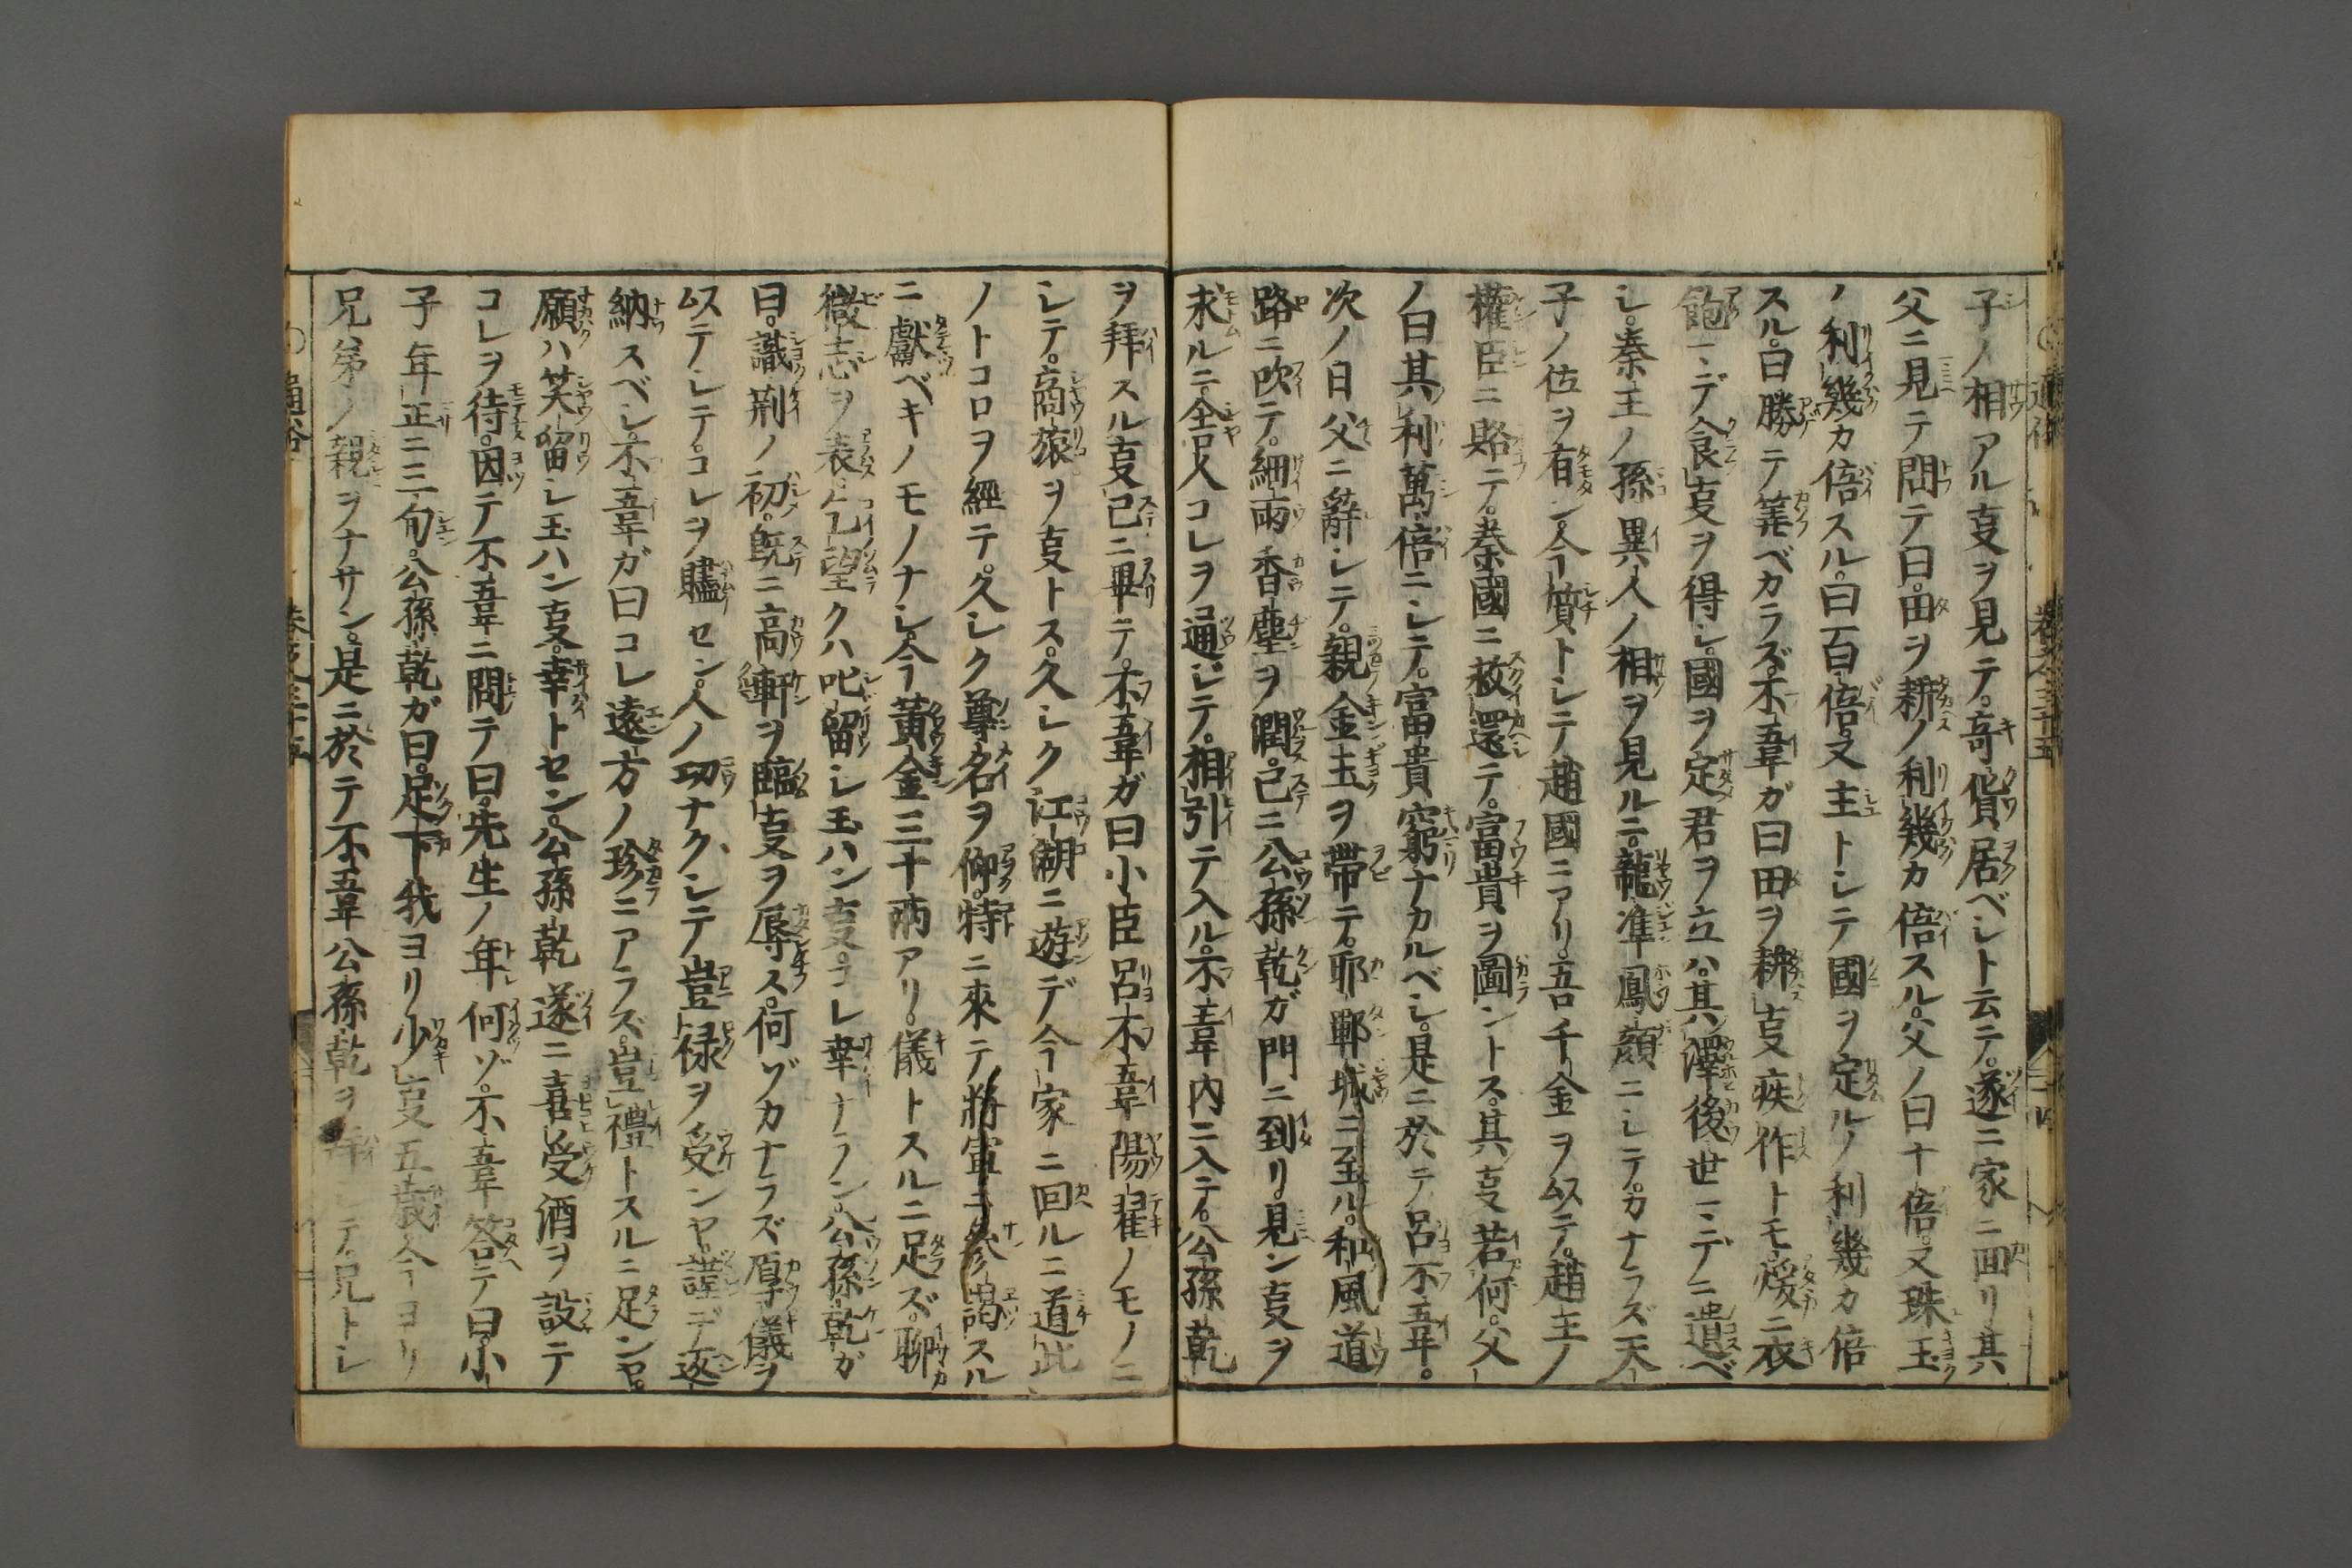 子ノ相アル叓ヲ見テ。奇貨居ベシト云テ。遂ニ家ニ回リ其
父ニ見テ問テ曰。田ヲ耕ノ利幾カ倍スル。父ノ曰十倍。又珠玉
ノ利幾カ倍スル。曰百倍。又主トシテ國ヲ定ルノ利幾カ倍
スル。曰勝テ筭ベカラズ。不韋ガ曰田ヲ耕叓疾作トモ。煖ニ衣
飽マデ食叓ヲ得シ。國ヲ定君ヲ立ハ。其澤後世マデニ遺ベ
シ。秦王ノ孫異人ノ相ヲ見ルニ。龍準鳳顔ニシテ。カナラズ天
子ノ位ヲ有ン。今質トシテ趙國ニアリ。吾千金ヲ以テ。趙王ノ
權臣ニ賂テ。秦國ニ救還テ。富貴ヲ圖ントス。其叓若何。父
ノ曰其利萬倍ニシテ。富貴窮ナカルベシ。是ニ於テ呂不韋。
次ノ日父ニ辭シテ。親金玉ヲ帶テ。邯鄲城ニ至ル。和風道
路ニ吹テ。細雨香塵ヲ潤。已ニ公孫乾ガ門ニ到リ。見ン叓ヲ
求ルニ。舎人コレヲ通ジテ。相引テ入ル。不韋内ニ入テ。公孫乾
ヲ拜スル叓已ニ畢テ。不韋ガ曰小臣呂不韋陽翟ノモノニ
シテ。商旅ヲ叓トス。久シク江湖ニ遊デ今家ニ回ルニ道此
ノトコロヲ經テ。久シク尊名ヲ仰。特ニ來テ將軍ニ參謁スル
ニ獻ベキノモノナシ。今黃金三十兩アリ。儀トスルニ足ズ。聊
微志ヲ表。乞望クハ叱留シ玉ハン叓。コレ幸ナラン。公孫乾ガ
曰。識荊ノ初。既ニ高軒ヲ臨叓ヲ辱ス。何ゾカナラズ厚儀ヲ
以テシテ。コレヲ贐セン。人ノ功ナクシテ。豈禄ヲ受ンヤ。謹デ返
納スベシ。不韋ガ曰コレ遠方ノ珍ニアラズ。豈禮トスルニ足ンヤ。
願ハ笑留シ玉ハン叓。幸トセン。公孫乾遂ニ喜受酒ヲ設テ
コレヲ待。因テ不韋ニ問テ曰。先生ノ年何ゾ。不韋答テ曰。小
子年正ニ三旬。公孫乾ガ曰。足下我ヨリ少叓五歳今ヨリ
兄弟ノ親ヲナサン。是ニ於テ不韋公孫乾ヲ拜シテ。兄トシ